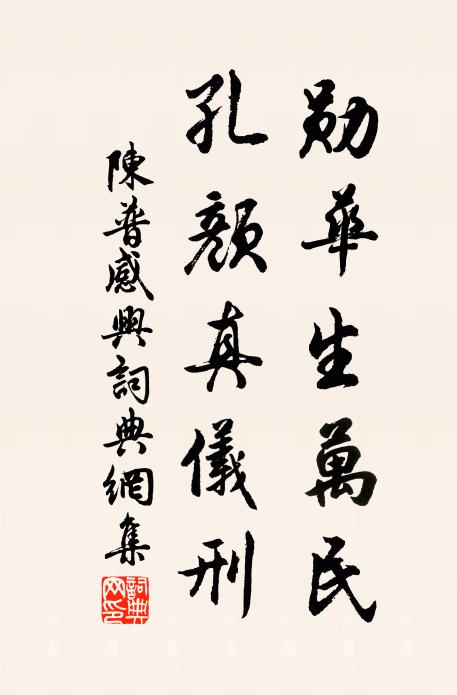 勛華生萬民
孔顏真儀刑
陳普感興詞典網集
詞典網印